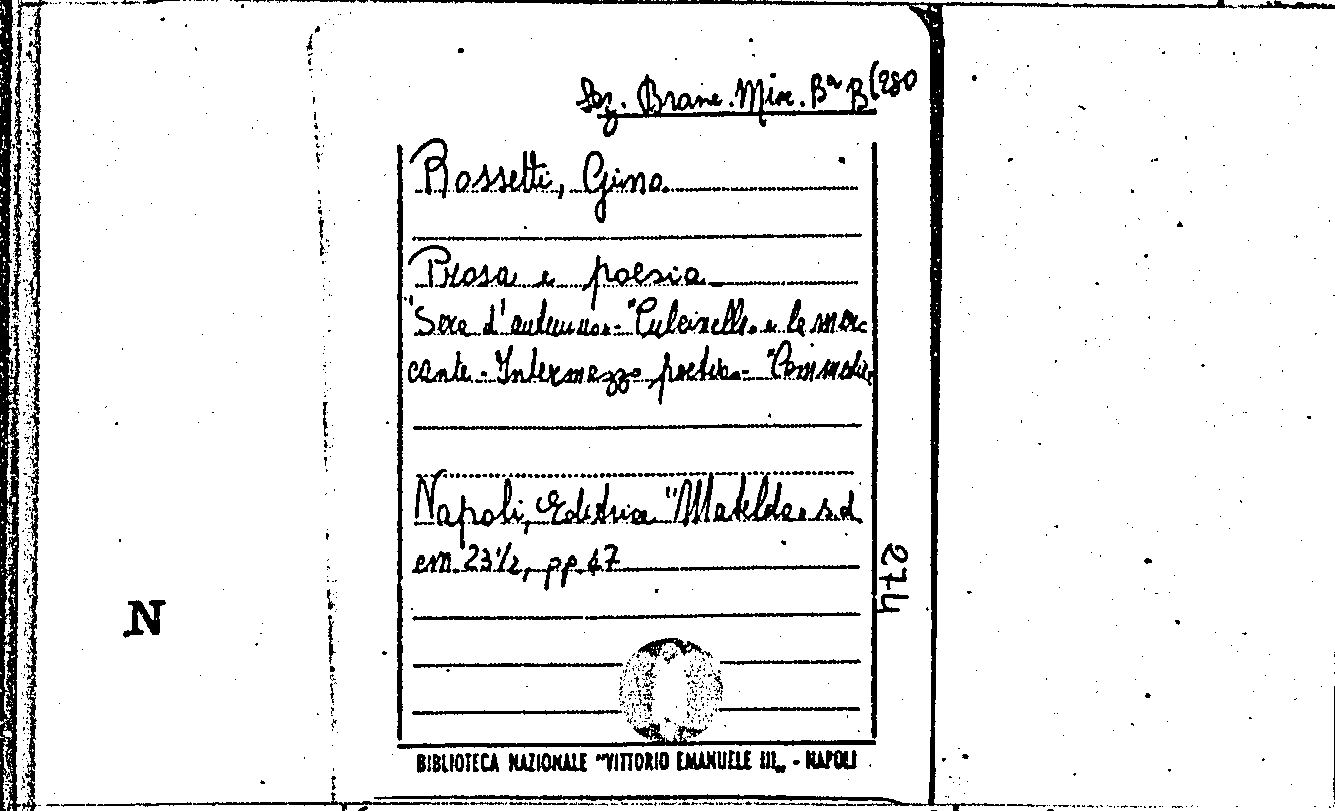 Sez. Branc. Misc. Bª B(280
Rossetti, Gino
Prosa e poesia
"Sera d'autunno - "Pulcinella e la mer
cante - Intermezzo poetico - "Commedia
Napoli, Editrice "Matelda, s.d.
cm 23 1/2, pp. 67
274
N
BIBLIOTECA NAZIONALE "VITTORIO EMANUELE III„ - NAPOLI